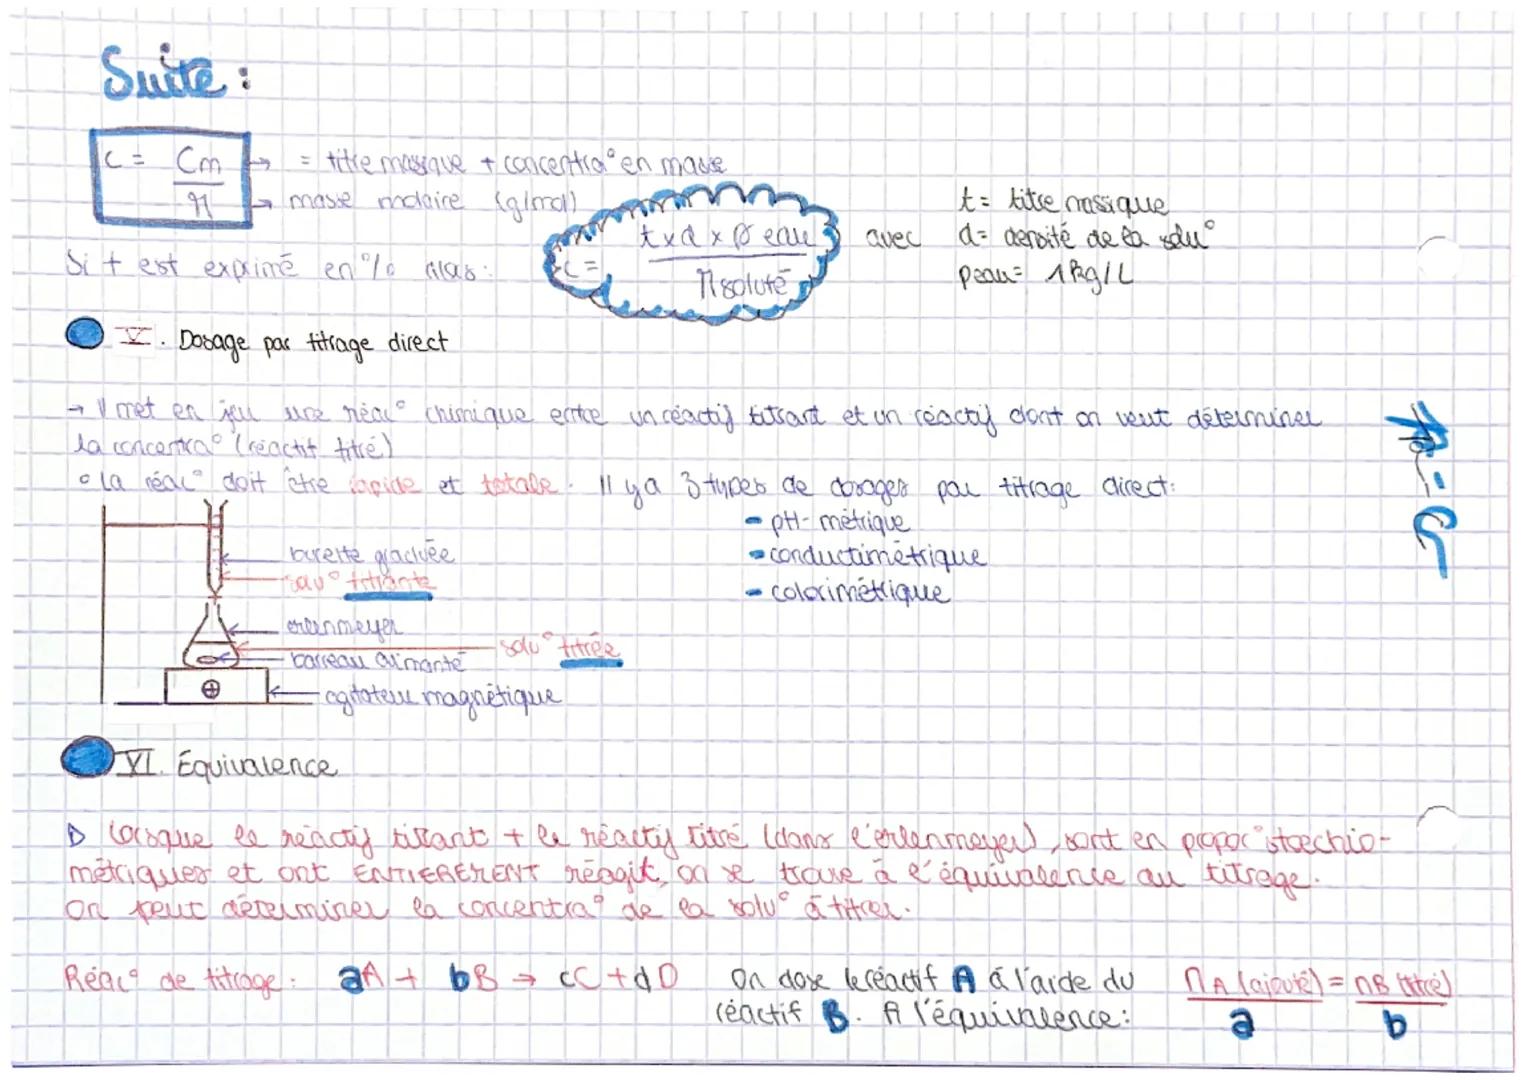 Suite :
C = Cm / M
→ = titre massique + concentra° en masse
→ masse molaire (g/mol)
Si t est exprimé en % alors :
C = t x d x ρ eau / M soluté
avec
t = titre massique
d = densité de la solu°
ρeau = 1 kg/L
V. Dosage par titrage direct
→ Il met en jeu une réac° chimique entre un réactif titrant et un réactif dont on veut déterminer
la concentra° (réactif titré)
∘ la réac° doit être rapide et totale. Il y a 3 types de dosages par titrage direct :
- pH-métrique
- conductimétrique
- colorimétrique
burette graduée
solu° titrante
erlenmeyer
solu° titrée
barreau aimanté
agitateur magnétique
VI. Equivalence
▷ Lorsque le réactif titrant + le réactif titré (dans l'erlenmeyer), sont en propor° stoechio-
métriques et ont ENTIEREMENT réagit, on se trouve à l'équivalence au titrage.
On peut déterminer la concentra° de la solu° à titrer.
Réac° de titrage : aA + bB → cC + dD
On dose le réactif A à l'aide du
réactif B. A l'équivalence :
nA (ajouté) / a = nB (titré) / b